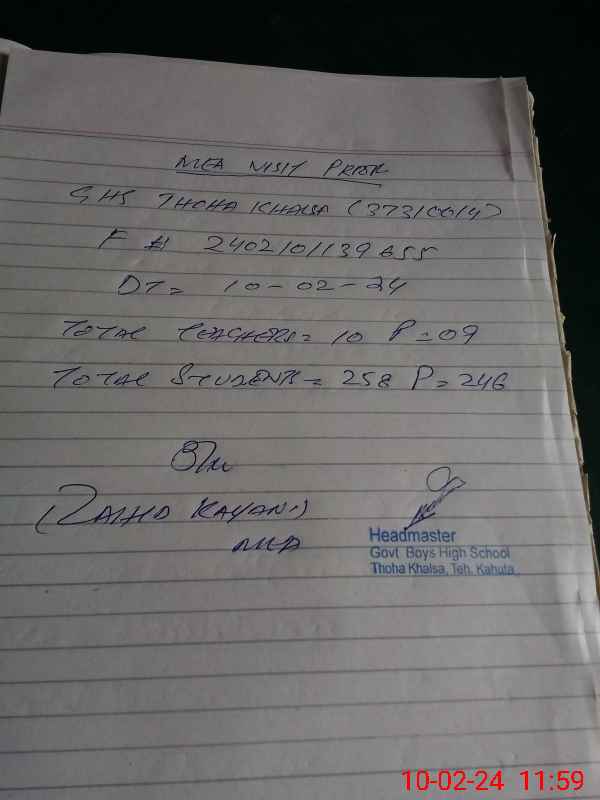 MEA VISIT PROOF
GHS THOHA KHALSA (37310014)
F # 2402101139655
DT = 10-02-24
TOTAL TEACHERS = 10 P = 09
TOTAL STUDENTS = 258 P = 246
(ZAHID KAYANI)
MEA
Headmaster
Govt Boys High School
Thoha Khalsa, Teh. Kahuta
10-02-24 11:59